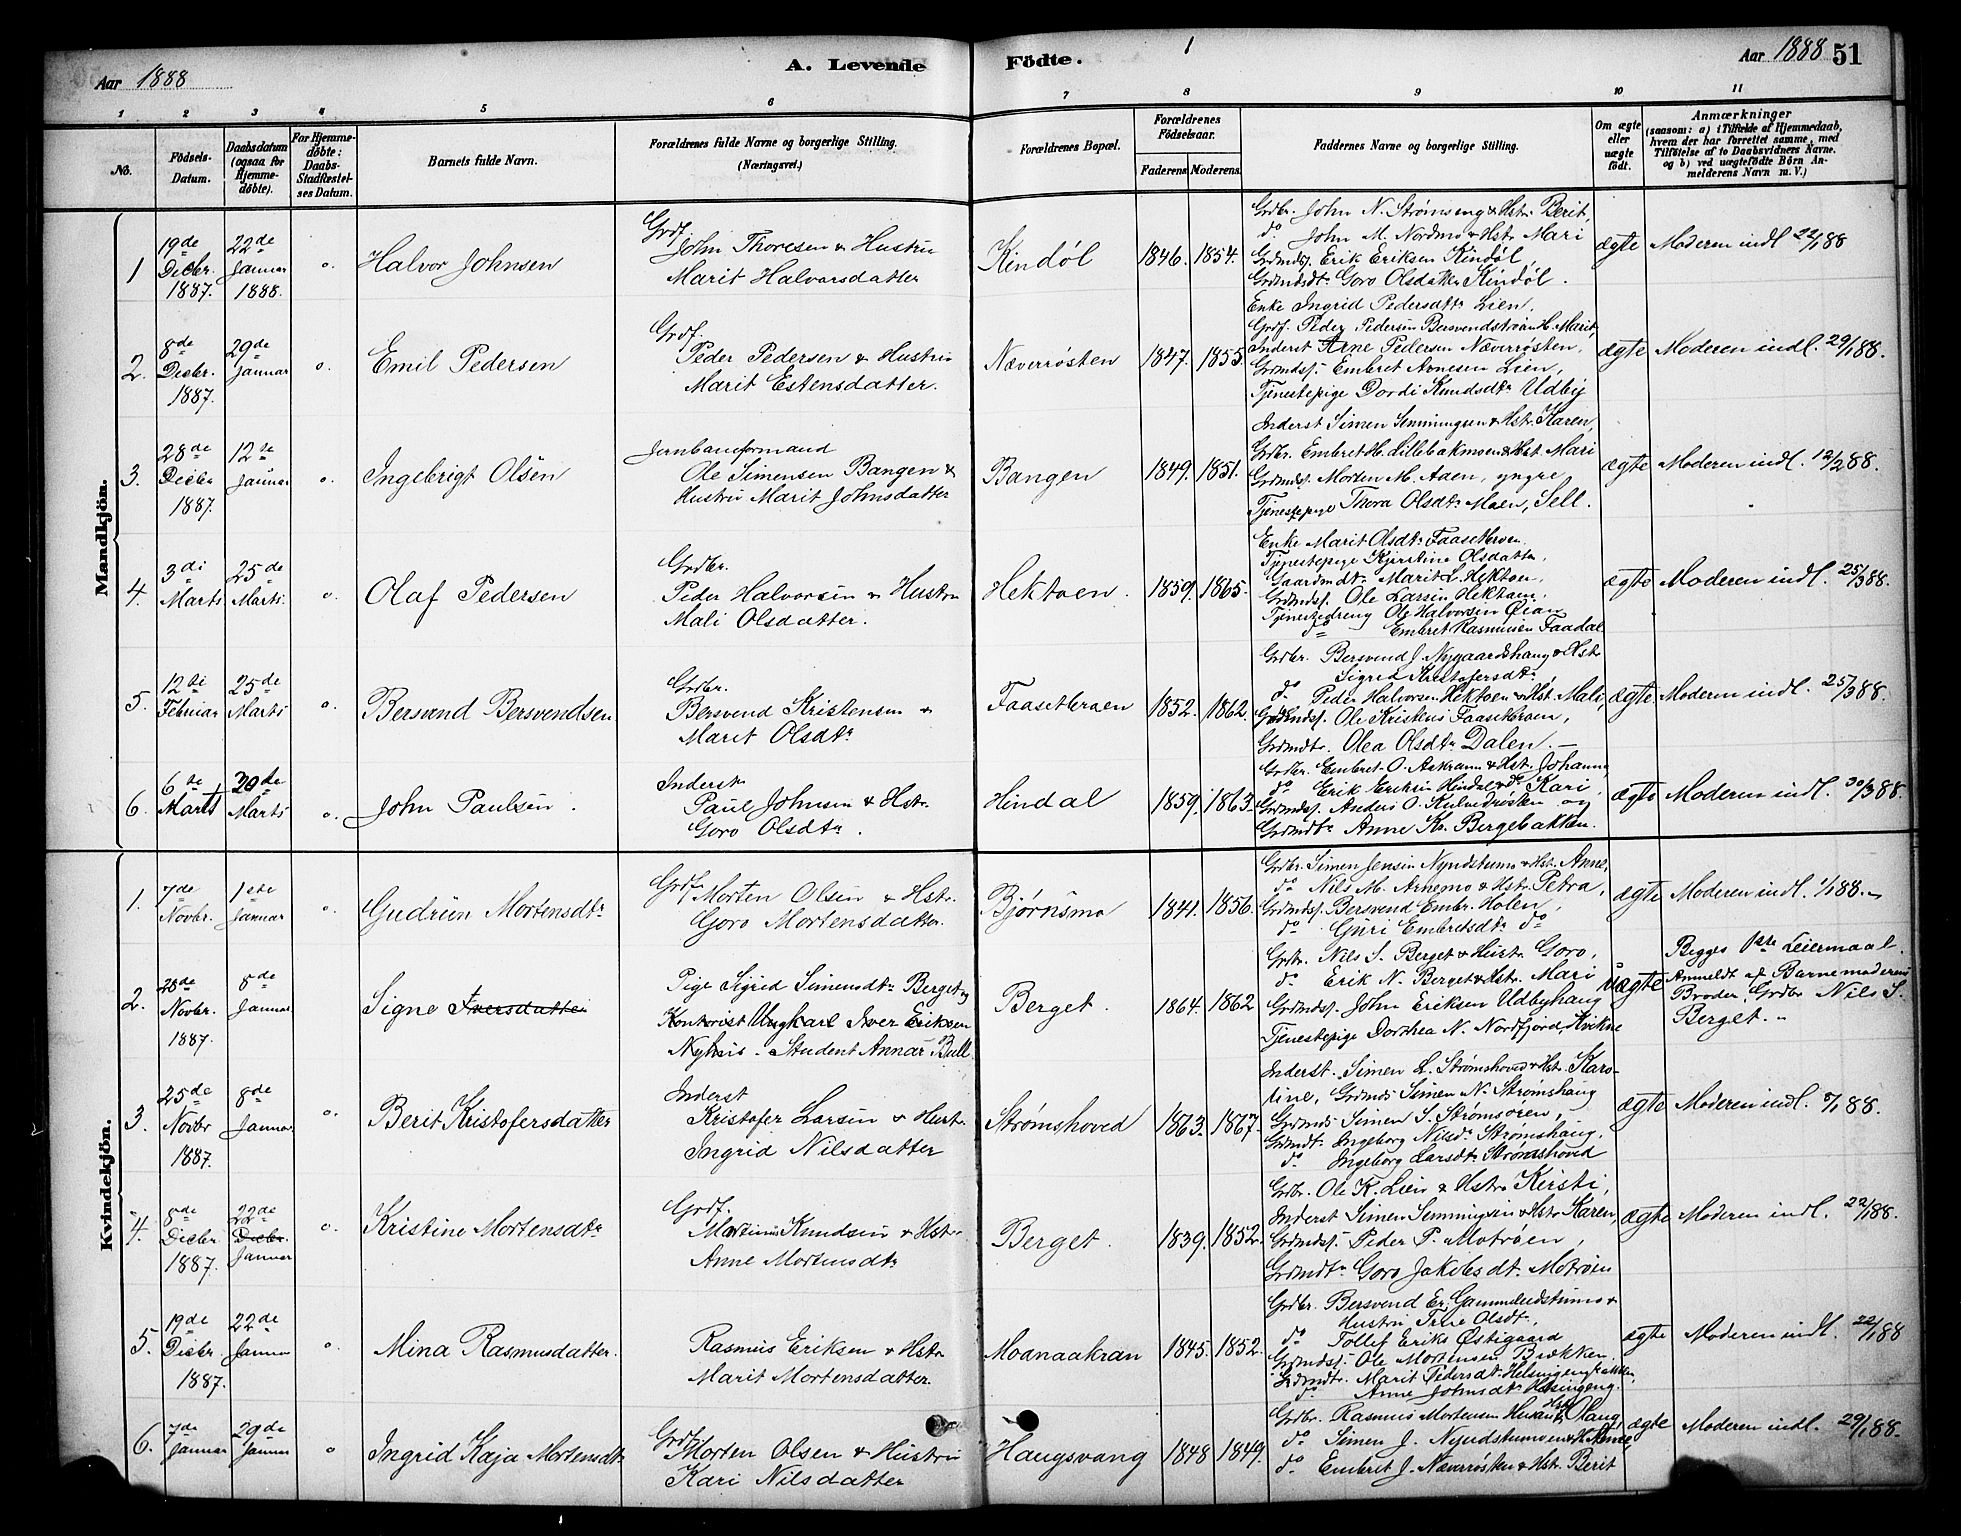 Aar 1888
A. Levende
Födte.
1
Aar 1888 51
1 2 3 4 5 6 7 8 9 10 11
No.
Födsels-
Datum.
Daabsdatum
(ogsaa for
Hjemme-
döbte).
For Hjemme-
döbte:
Daabs-
Stadfæstel-
ses Datum.
Barnets fulde Navn.
Forældrenes fulde Navne og borgerlige Stilling.
(Næringsvei.)
Forældrenes Bopæl.
Forældrenes
Födselsaar.
Faderens. Moderens.
Faddernes Navne og borgerlige Stilling.
Om ægte
eller
uægte
födt.
Anmærkninger
(saasom: a) i Tilfælde af Hjemmedaab,
hvem der har forrettet samme, med
Tilföielse af to Daabsvidners Navne,
og b) ved uægtefödte Börn An-
melderens Navn m. V.)
Mandkjön.
1
19de
Decbr.
1887.
22de
Januar
1888.
o.
Halvor Johnsen
Grdf.
John Thoresen & Hustru
Marit Halvorsdatter
Kindøl
1846. 1854.
Grdbr. John N. Strømseng & Hstr. Berit,
do John M. Nordmo & Hstr. Mari
Grdmdsf. Erik Eriksen Kindøl,
Grdmdsdtr. Goro Olsdatter Kindøl.
ægte
Moderen indl. 22/1 88
2.
8de
Decbr.
1887.
29de
Januar
o.
Emil Pedersen
Grdf.
Peder Pedersen & Hustru
Marit Estensdatter.
Næverrösten
1847. 1855.
Enke Ingrid Pedersdtr. Lien,
Grdf. Peder Pedersen Bersvendstrøen H. Marit,
Inderst Arne Pedersen Næverrösten,
Grdmdsf. Embret Arnesen Lien,
Tjenestepige Dordi Knudsdtr. Udby
ægte
Moderen indl. 29/1 88.
3.
28de
Decbr
1887.
12te
Januar
o.
Ingebrigt Olsen
Jernbaneformand
Ole Simensen Bangen &
Hustru Marit Johnsdatter
Bangen
1849. 1851.
Inderst Simen Semmingsen & Hstr. Karen,
Grdbr. Embret H. Lillebakmoen & Hst. Mari
Grdmdsf. Morten M. Aaen, yngre
Tjenestepige Thora Olsdtr. Moen, Sell.
ægte
Moderen indl. 12/2 88.
4.
3di
Marts
25de
Marts.
o
Olaf Pedersen
Grdbr.
Peder Halvorsen & Hustru
Mali Olsdatter.
Hektoen.
1859. 1865.
Enke Marit Olsdtr. Faasetbroen.
Tjenestepige Kjerstine Olsdatter,
Gaardmdt. Marit L. Hektoen,
Grdmdsf. Ole Larsen Hektoen,
Tjenestedreng Ole Halvorsen Øian
do Embret Rasmusen Faadal.
ægte
Moderen indl. 25/3 88.
5.
12te
Februar
25de
Marts
o.
Bersvend Bersvendsen
Grdbr.
Bersvend Kristensen &
Marit Olsdtr.
Faasetbroen
1852. 1862.
Grdbr. Bersvend J. Nygaardshaug & Hstr
Sigrid Kristofersdtr,
do Peder Halvorsen Hektoen & Hst. Mali,
Grdmdsf. Ole Kristens. Faasetbroen,
Grdmdtr. Olea Olsdtr. Dalen. —
ægte
Moderen indl. 25/3 88.
6.
6te
Marts
30de
Marts
o.
John Paulsen.
Inderst
Paul Johnsen & Hstr.
Goro Olsdtr.
Hindal
1859. 1863.
Grdbr. Embret O. Aakrann & Hst. Johanne,
do Erik Eriksen Hindal & do Kari,
Grdmdsf. Anders O. Kulvedrösten og
Grdmdtr. Anne Kr. Bergebakken.
ægte
Moderen indl. 30/3 88.
Kvindekjön.
1.
7de
Novbr.
1ste
Januar
o
Gudrun Mortensdtr.
Grdf. Morten Olsen & Hstr.
Goro Mortensdatter.
Bjørnsmo
1841. 1856.
Grdbr. Simen Jensen Nyndstumo & Hst. Anne,
do Nils M. Arnemo & Hstr. Petra,
Grdmdsf. Bersvend Embr. Holen,
do Guri Embretsdtr. do
ægte
Moderen indl. 1/1 88.
2.
28de
Novbr.
1887.
8de
Januar
Signe Iversdatter
Pige Sigrid Simensdtr. Berget og
Kontorist Ungkarl Iver Eriksen
Nyhus. Student Annar Bull.
Berget.
1864. 1862
Grdbr. Nils S. Berget & Hustr. Goro,
do Erik N. Berget & Hstr. Mari
Grdmdsf. John Eriksen Udbyhaug
Tjenestepige Dorthea N. Nordfjord, Kvikne
uægte
Begges 1ste Leiermaal.
Anmeldt af Barnemoderens
Broder, Grdbr Nils S.
Berget.
3.
25de
Novbr
1887.
8de
Januar
o.
Berit Kristofersdatter
Inderst
Kristofer Larsen & Hustr.
Ingrid Nilsdatter
Strømshoved
1863. 1867.
Inderst. Simen L. Strømshoved & Hst. Karo-
line, Grdmds. Simen N. Strømshaug
Grdmds. Simen S. Strømsören,
Grdmdt. Ingeborg Nilsdr. Strømshaug,
do Ingeborg Larsdtr. Strømshoved
ægte
Moderen indl. 8/1 88.
4.
8de
Decbr
1887.
22de
Decbr.
Januar
o.
Kristine Mortensdtr.
Grdf.
Martinus Knudsen & Hstr.
Anne Mortensdtr.
Berget.
1839. 1852.
Grdbr. Ole K. Lien & Hstr. Kirsti,
Inderst Simen Semmingsen & Hstr. Karen,
Grdmdsf. Peder P. Motrøen,
Grdmdtr. Goro Jakobsdt. Motrøen
ægte
Moderen indl. 22/1 88.
5.
19de
Decbr.
1887.
22de
Januar
o
Mina Rasmusdatter.
Rasmus Eriksen & Hstr.
Marit Mortensdatter.
Moanaakran
1845. 1852.
Grdbr. Bersvend Er. Gammeludstumo &
Hustru Trne Olsdt,
do Tollef Eriks. Østigaard
Grdmdsf. Ole Mortensen Brækken.
Grdmdtr. Marit Pedersdt. Helsingengbakken,
do Anne Johnsdtr. Helsingeng.
ægte
Moderen indl. 22/1 88
6.
7de
Januar
29de
Januar
o
Ingrid Kaja Mortensdtr.
Grdf. Morten Olsen & Hustru
Kari Nilsdatter
Haugsvang
1848 1849.
Grdbr. Rasmus Mortensen Hst. Haug,
do Simen J. Nyndstumoen & H. Anne,
do Embret J. Næverrösten & Hstr. Berit
ægte
Moderen indl. 29/1 88.